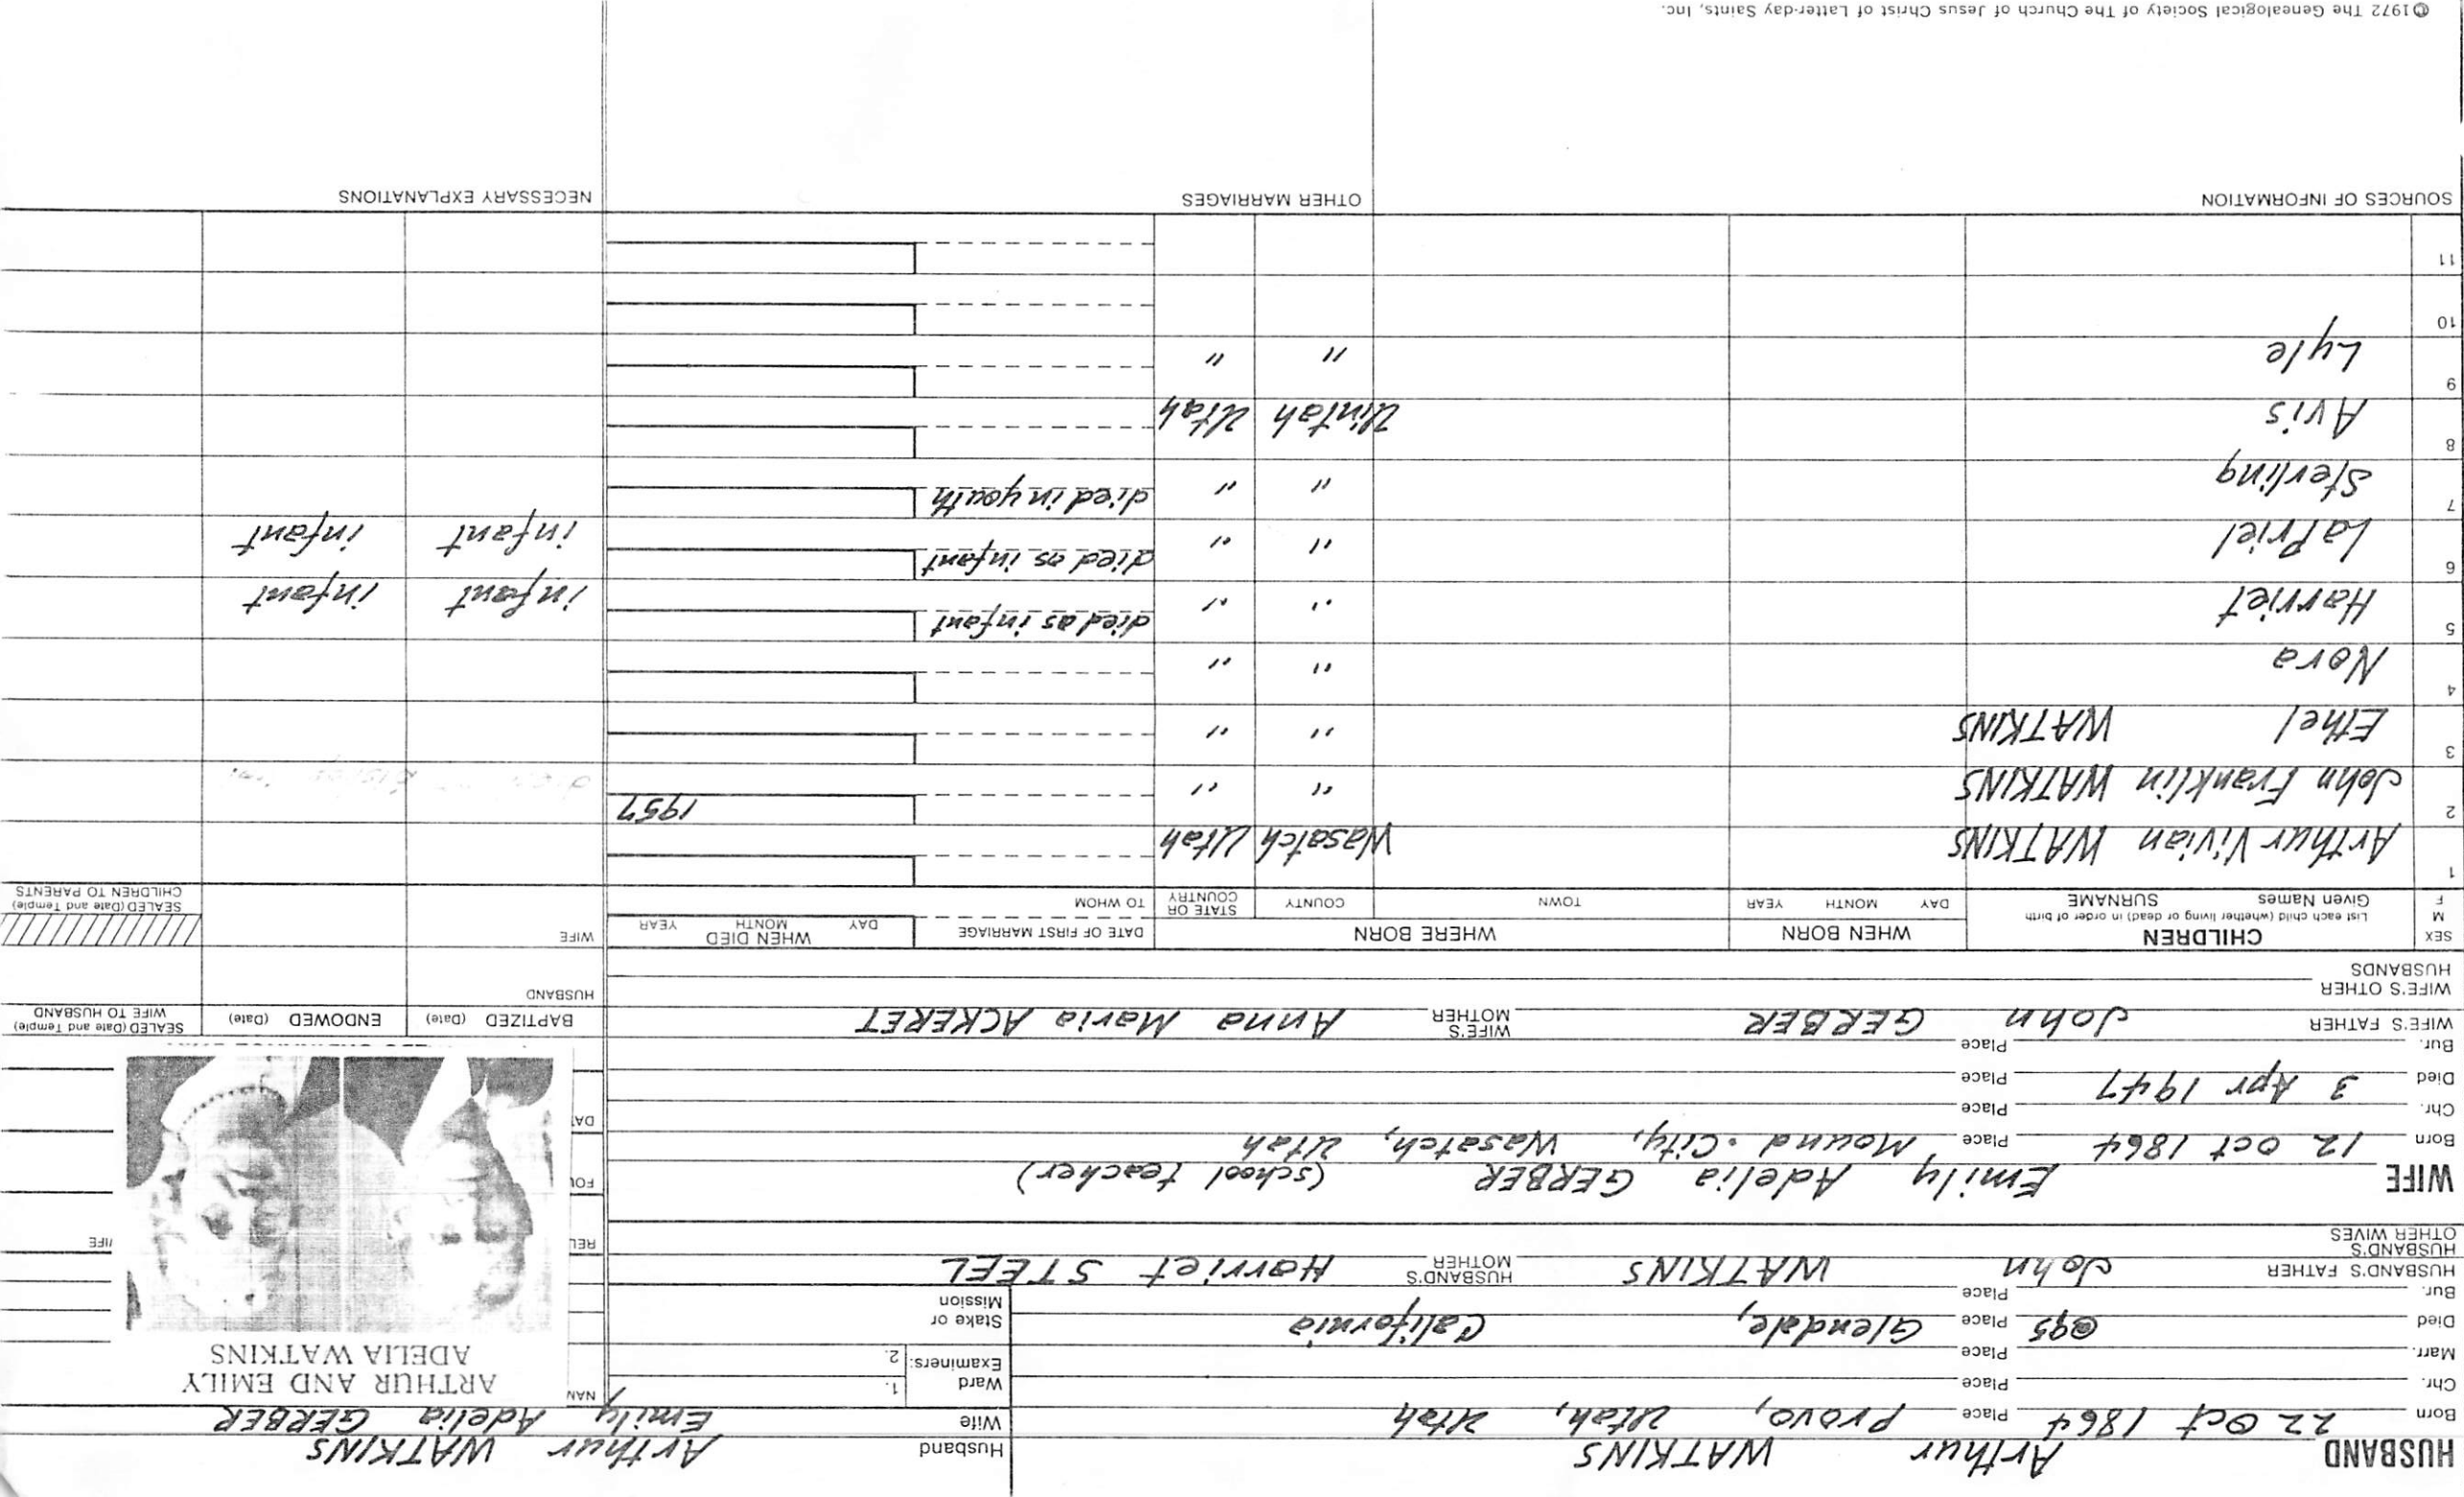 HUSBAND Arthur WATKINS
Born 22 Oct 1864 Place Provo, Utah, Utah
Chr. Place
Marr. Place
Died @95 Place Glendale, California
Bur. Place
HUSBAND'S FATHER John WATKINS HUSBAND'S MOTHER Harriet STEEL
HUSBAND'S OTHER WIVES
Husband Arthur WATKINS
Wife Emily Adelia GERBER
Ward Examiners: 1. 2.
Stake or Mission
NAN
ARTHUR AND EMILY
ADELIA WATKINS
REL IFE
FOU
DAT
WIFE Emily Adelia GERBER (school teacher)
Born 12 Oct 1864 Place Mound City, Wasatch, Utah
Chr. Place
Died 3 Apr 1947 Place
Bur. Place
WIFE'S FATHER John GERBER WIFE'S MOTHER Anna Maria ACKERET
WIFE'S OTHER HUSBANDS
BAPTIZED (Date) ENDOWED (Date) SEALED (Date and Temple) WIFE TO HUSBAND
HUSBAND
WIFE
SEX M F CHILDREN List each child (whether living or dead) in order of birth Given Names SURNAME WHEN BORN DAY MONTH YEAR WHERE BORN TOWN COUNTY STATE OR COUNTRY DATE OF FIRST MARRIAGE TO WHOM WHEN DIED DAY MONTH YEAR SEALED (Date and Temple) CHILDREN TO PARENTS
1 Arthur Vivian WATKINS Wasatch Utah
2 John Franklin WATKINS " " 1957
3 Ethel WATKINS " "
4 Nora " "
5 Harriet " " died as infant infant infant
6 LaPriel " " died as infant infant infant
7 Sterling " " died in youth
8 Avis Uintah Utah
9 Lyle " "
10
11
SOURCES OF INFORMATION OTHER MARRIAGES NECESSARY EXPLANATIONS
©1972 The Genealogical Society of The Church of Jesus Christ of Latter-day Saints, Inc.